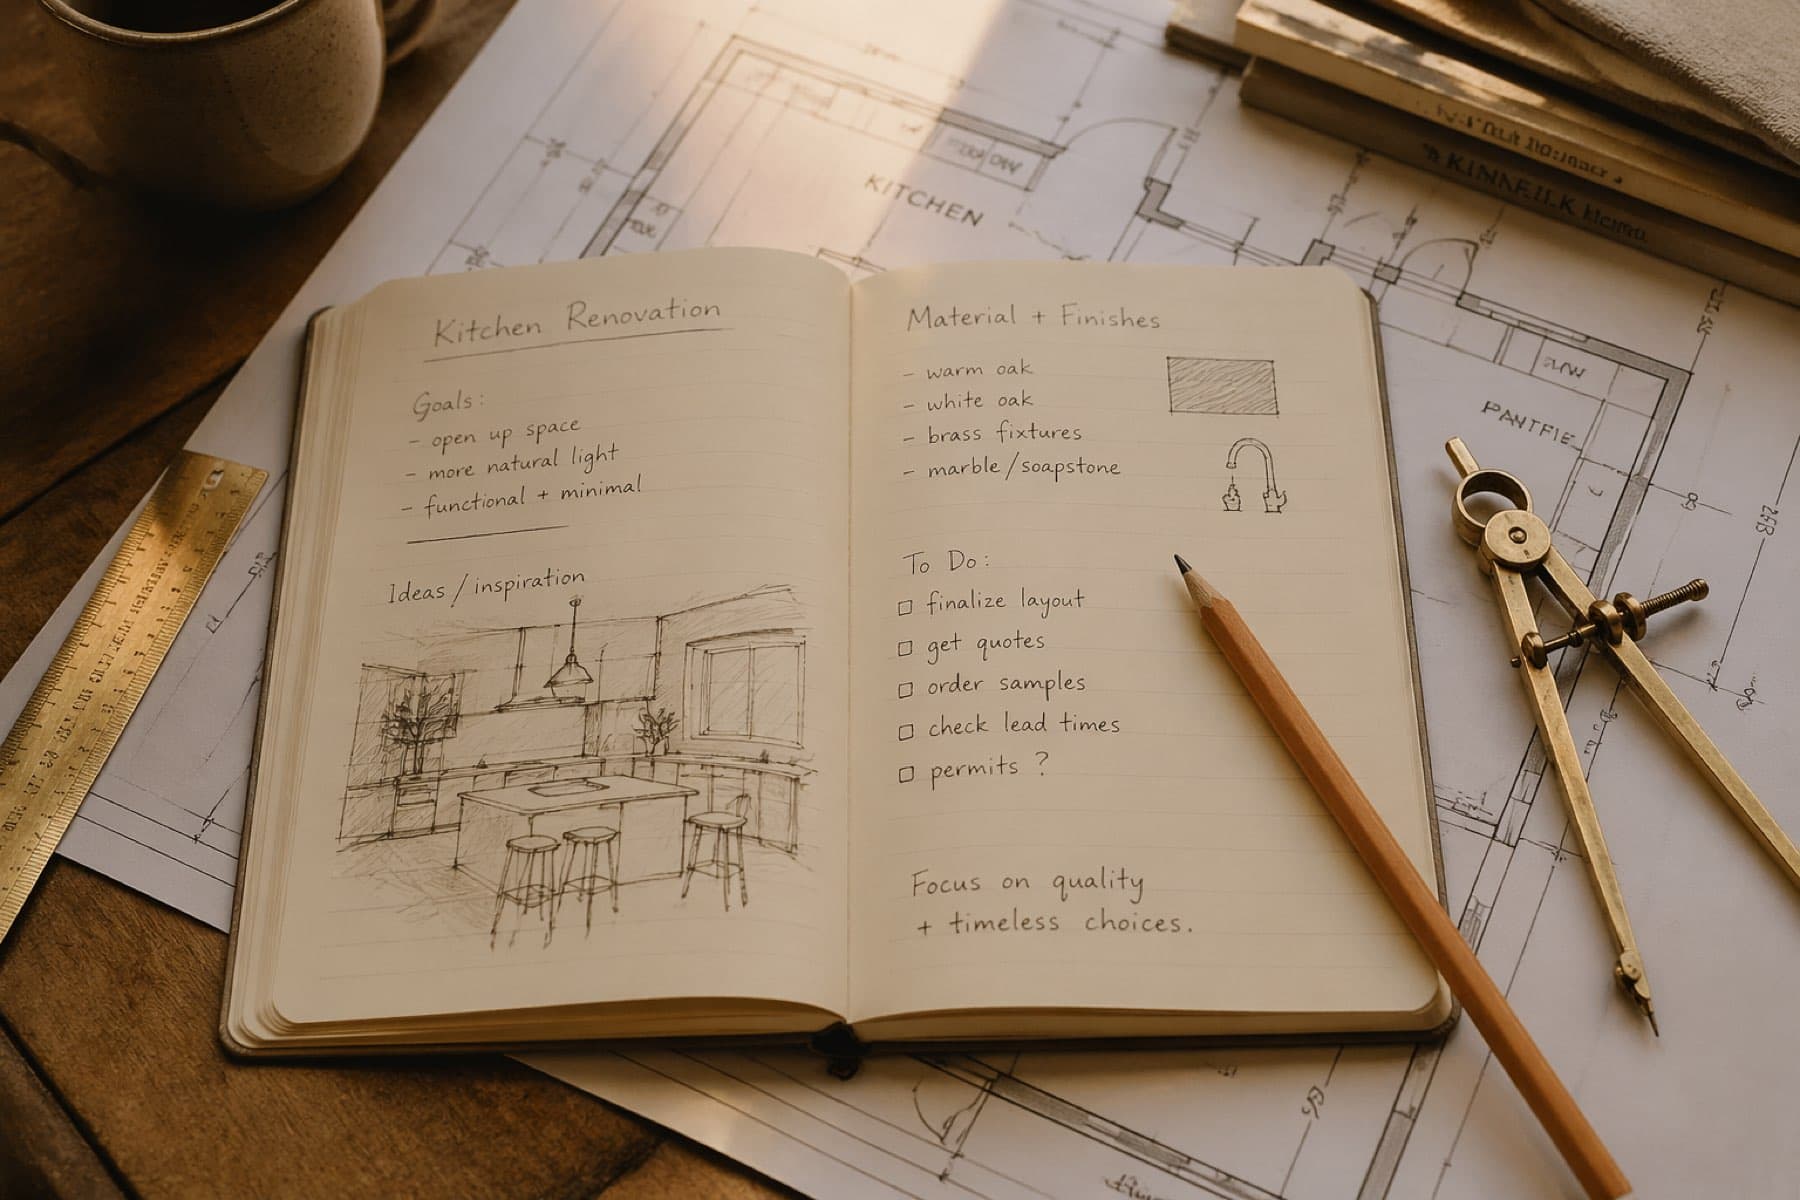 Kitchen Renovation
Goals:
- open up space
- more natural light
- functional + minimal
Ideas / inspiration
Material + Finishes
- warm oak
- white oak
- brass fixtures
- marble/soapstone
To Do:
☐ finalize layout
☐ get quotes
☐ order samples
☐ check lead times
☐ permits ?
Focus on quality
+ timeless choices.
KITCHEN